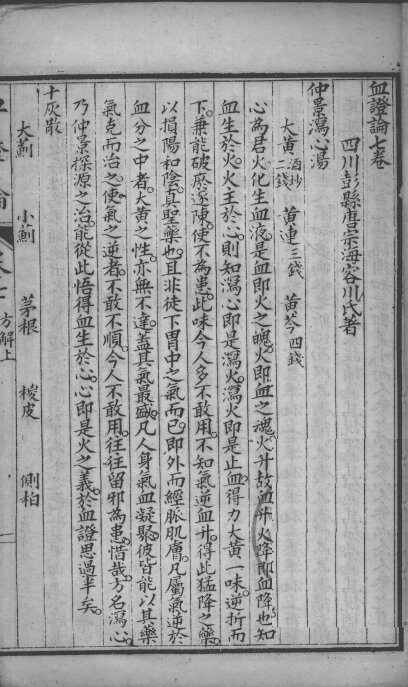 血證論七卷
四川彭縣唐宗海容川氏著
仲景瀉心湯
大黃二錢酒炒 黃連三錢 黃芩四錢
心為君火化生血液是血即火之魄火即血之魂火升故血升火降即血降也知
血生於火火主於心則知瀉心即是瀉火瀉火即是止血得力大黃一味逆折而
下兼能破瘀逐陳使不為患此味今人多不敢用不知氣逆血升得此猛降之藥
以損陽和陰真聖藥也且非徒下胃中之氣而已即外而經脈肌膚凡屬氣逆於
血分之中者大黃之性亦無不達蓋其氣最盛凡人身氣血凝聚彼皆能以其藥
氣克而治之使氣之逆者不敢不順今人不敢用往往留邪為患惜哉方名瀉心
乃仲景探源之治能從此悟得血生於心心即是火之義於血證思過半矣
十灰散
大薊 小薊 茅根 椶皮 側柏
方解上